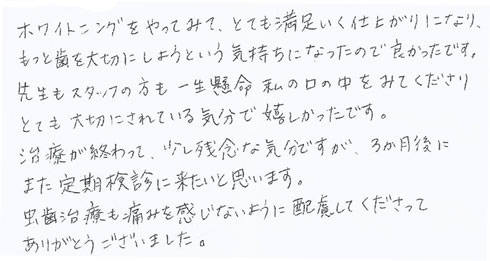 ホワイトニングをやってみて、とても満足いく仕上がりになり、
もっと歯を大切にしようという気持ちになったので良かったです。
先生もスタッフの方も一生懸命私の口の中をみてくださり
とても大切にされている気分で嬉しかったです。
治療が終わって、少し残念な気分ですが、3か月後に
また定期検診に来たいと思います。
虫歯治療も痛みを感じないように配慮してくださって
ありがとうございました。